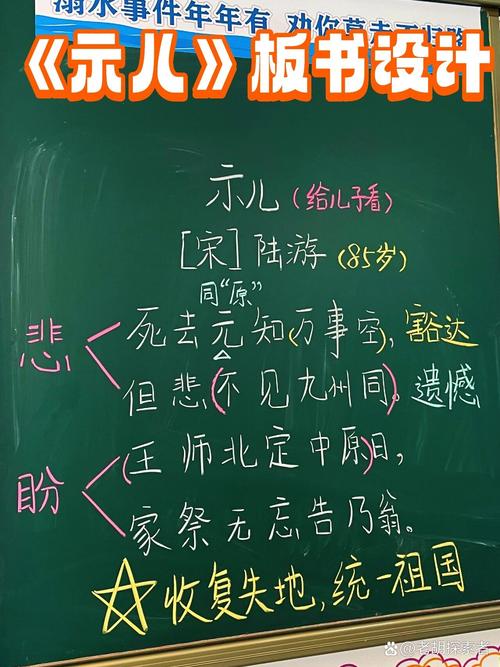 溺水事件年年有 劝你莫
《示儿》板书设计
示儿(给儿子看)
[宋]陆游(85岁)
同“原”
悲
死去元知(万事空),豁达
但悲(不见九州同)。遗憾
盼
(王师北定中原)日,
家祭无忘告乃翁。
☆收复失地,统一祖国
老胡探索者